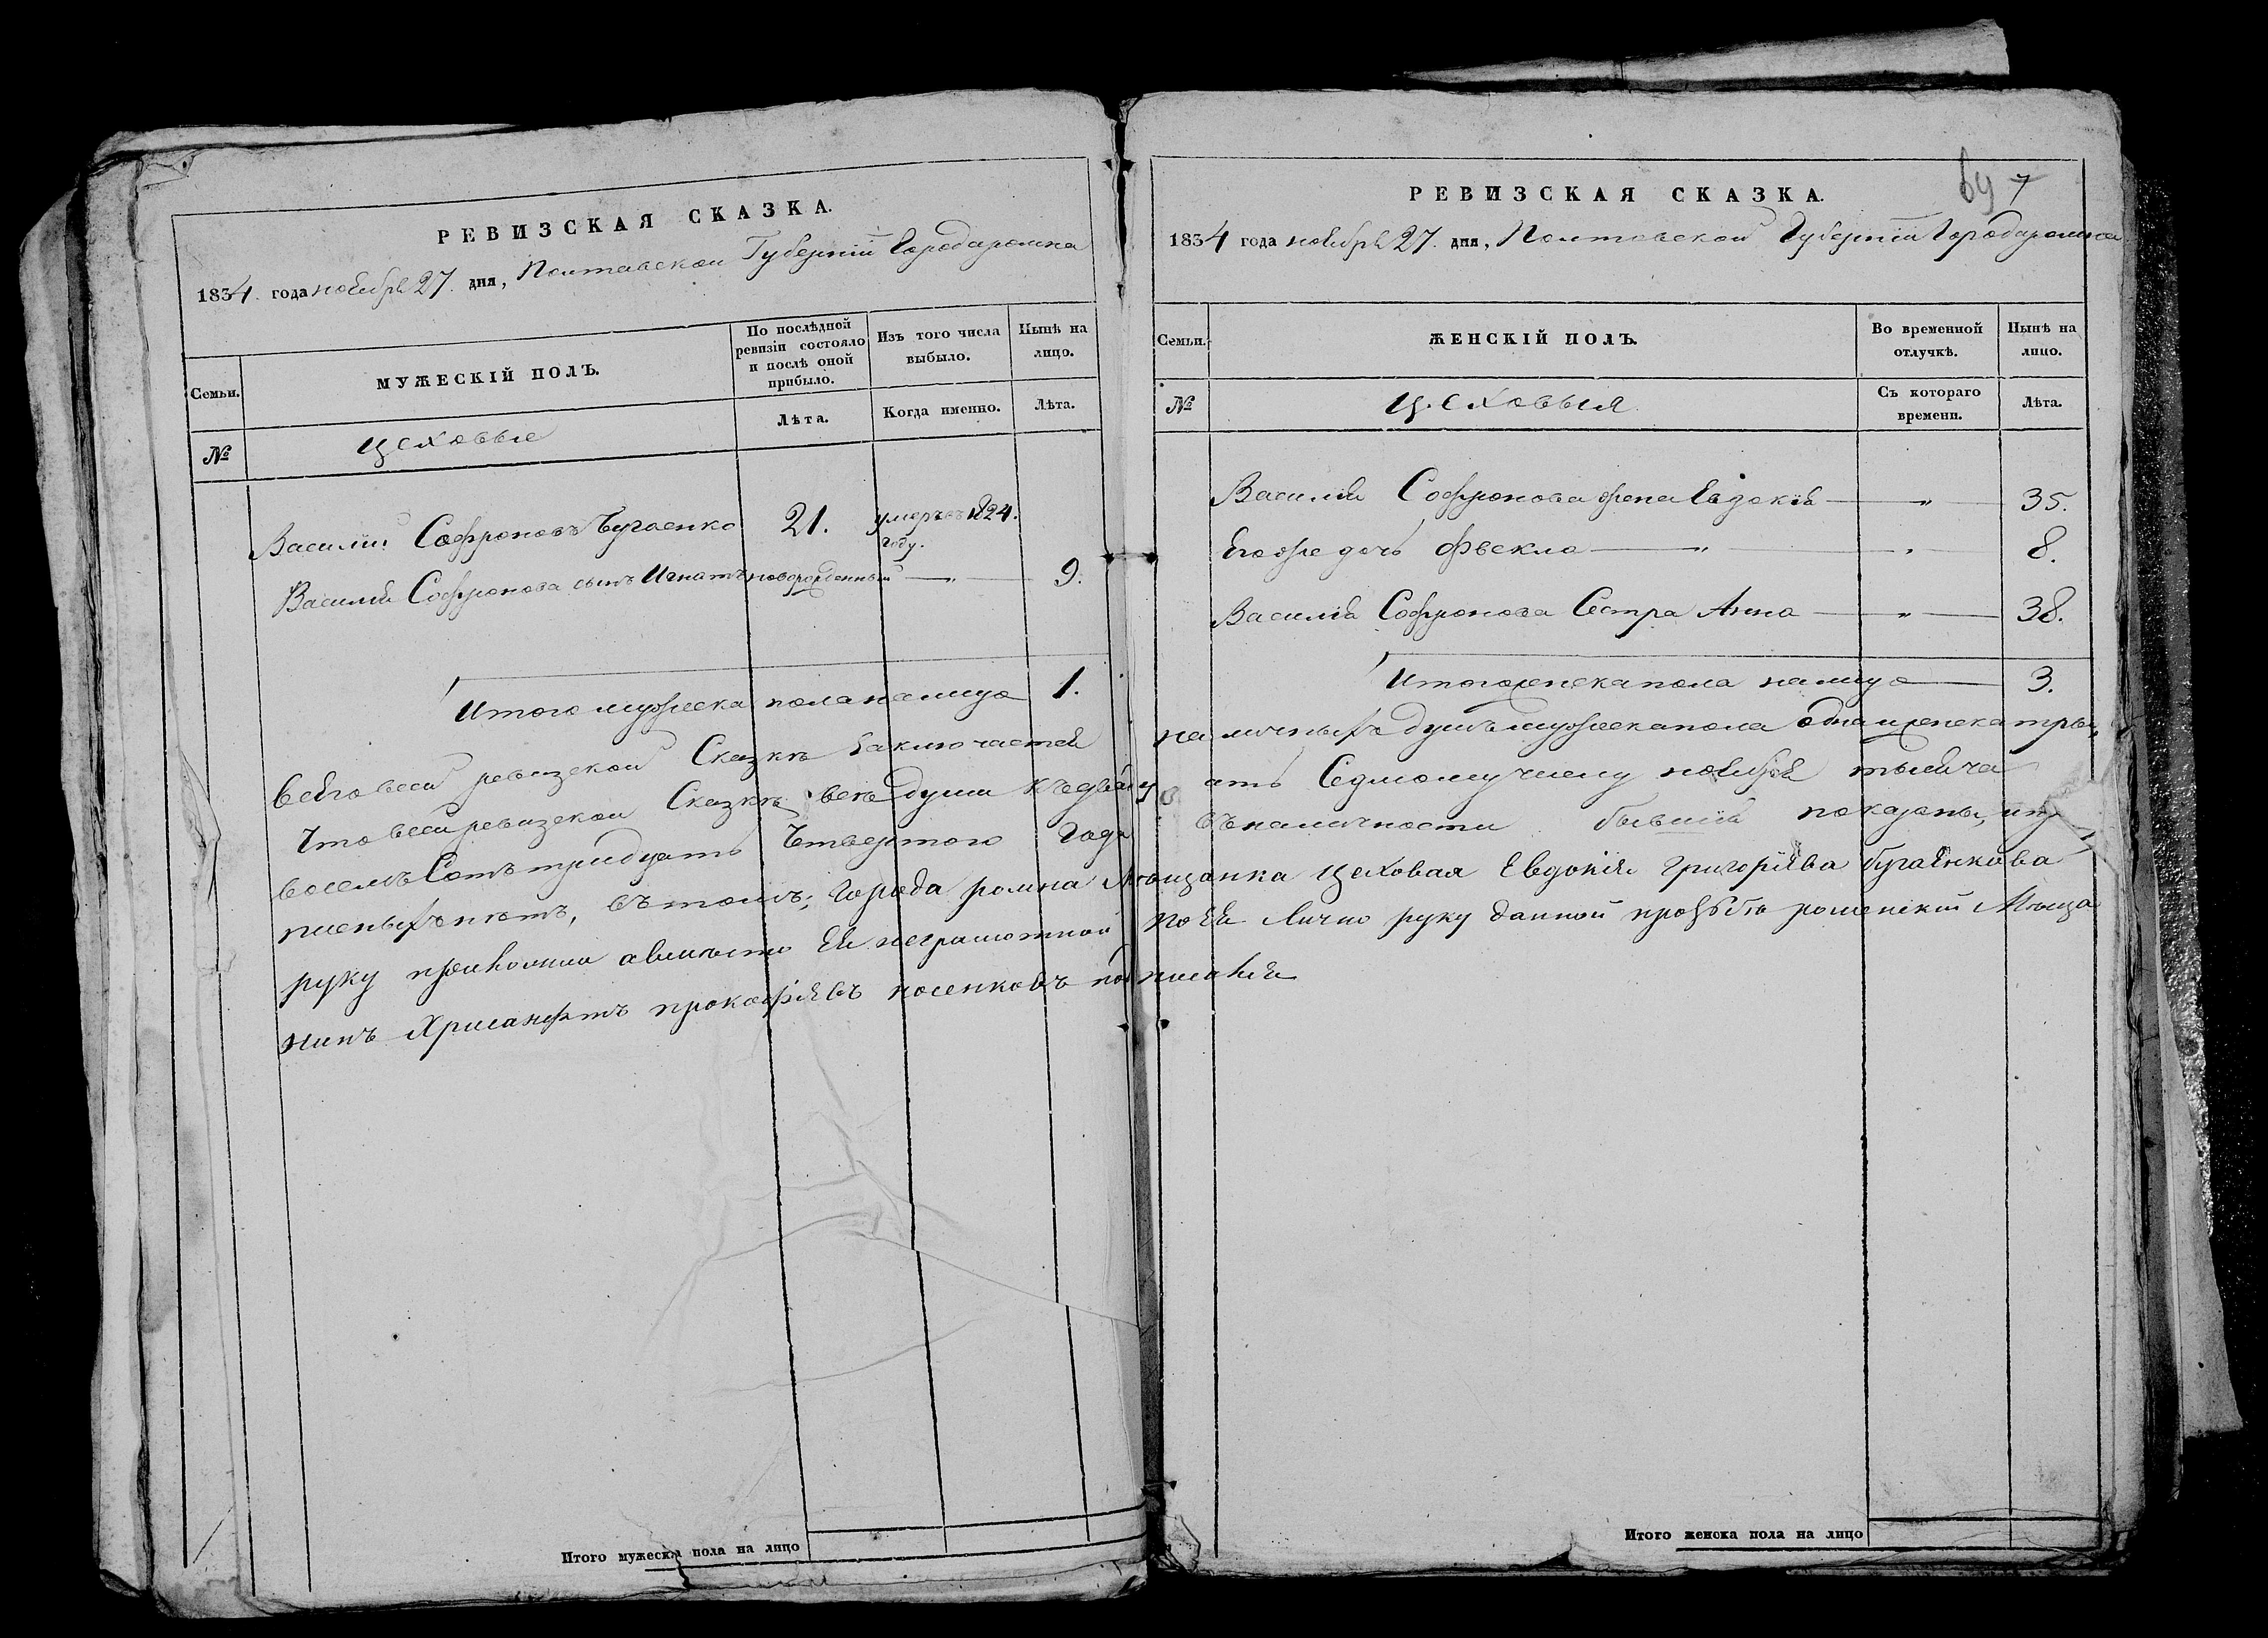 РЕВИЗСКАЯ СКАЗКА.
1834. года ноября 27. дня, Полтавской Губерніи Города ромна
Семьи.
МУЖЕСКІЙ ПОЛЪ.
По послѣдной ревизіи состояло и послѣ оной прибыло.
Изъ того числа выбыло.
Нынѣ на лицо.
Лѣта.
Когда именно.
Лѣта.
№
цеховые
Василий Софроновъ Бугаенко 21. умеръ въ 1824. году.
Василия Софронова сынъ Игнатъ новорожденный — " — 9.
Итого мужеска пола налицо 1.
Итого мужеска пола на лицо
РЕВИЗСКАЯ СКАЗКА.
69 7
1834 года ноября 27. дня, Полтавской Губерніи Города ромна
Семьи.
ЖЕНСКІЙ ПОЛЪ.
Во временной отлучкѣ.
Нынѣ на лицо.
№
цеховыя
Съ котораго времени.
Лѣта.
Василія Софронова жена Евдокія — " — 35.
Его же дочь Фвекла — " — 8.
Василія Софронова Сестра Анна — " — 38.
Итого женска пола налицо — 3.
Всего всей ревизской Сказкѣ заключается наличныхъ душъ мужеска пола одна и женска три,
Что всей ревизской Сказкѣ всѣ души къ двадцать Седмому числу ноября тысяча
восемь Сотъ тридцать Четвертого Года въ наличности бывшія показаны, и
писныхъ нѣтъ, въ томъ; города ромна Мѣщанка цеховая Евдокія григоріева бугаенкова
руку приложила а вмѣсто Ея неграмотной по Ея Лично руку данной прозбѣ роменскій Мѣща
нинъ Хрисанфъ прокофіевъ носенковъ подписался
Итого женска пола на лицо